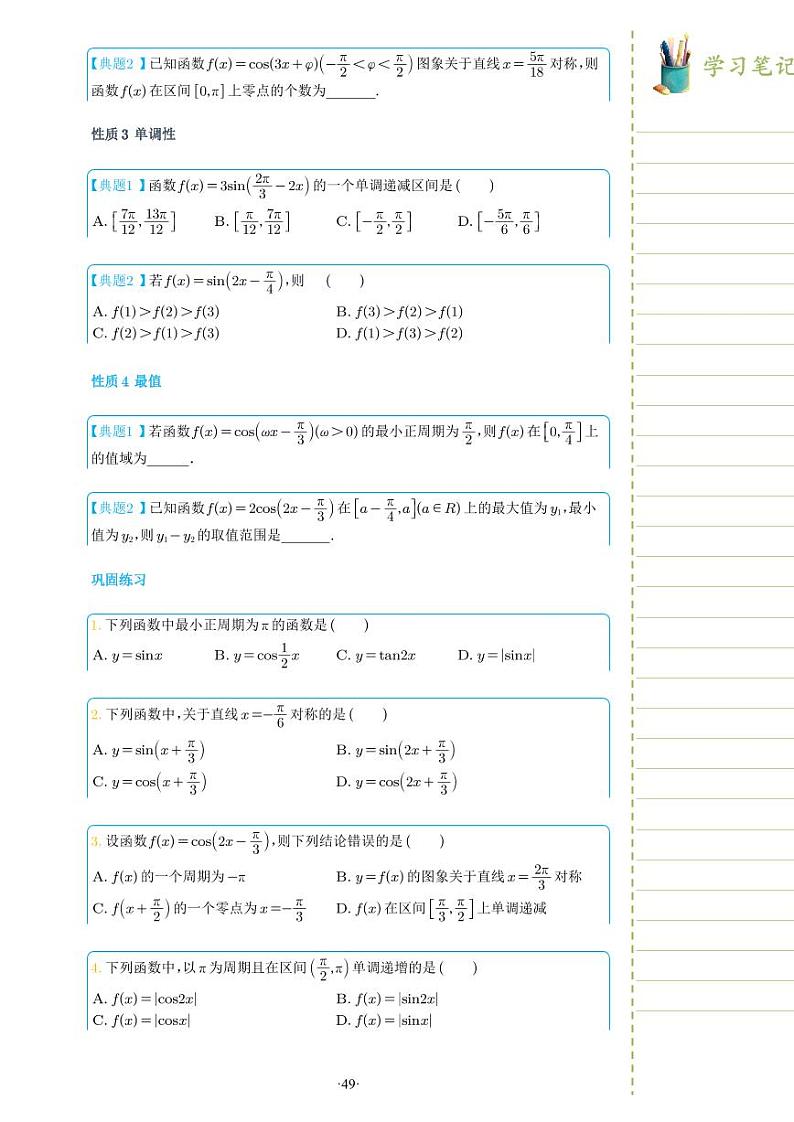 【典题2】已知函数f(x)=cos(3x+φ)(-π/2<φ<π/2)图象关于直线x=5π/18对称,则
函数f(x)在区间[0,π]上零点的个数为______.
学习笔记
性质3 单调性
【典题1】函数f(x)=3sin(2π/3-2x)的一个单调递减区间是( )
A.[7π/12,13π/12] B.[π/12,7π/12] C.[-π/2,π/2] D.[-5π/6,π/6]
【典题2】若f(x)=sin(2x-π/4),则 ( )
A. f(1)>f(2)>f(3) B. f(3)>f(2)>f(1)
C. f(2)>f(1)>f(3) D. f(1)>f(3)>f(2)
性质4 最值
【典题1】若函数f(x)=cos(ωx-π/3)(ω>0)的最小正周期为π/2,则f(x)在[0,π/4]上
的值域为_____.
【典题2】已知函数f(x)=2cos(2x-π/3)在[a-π/4,a](a∈R)上的最大值为y₁,最小
值为y₂,则y₁-y₂的取值范围是______.
巩固练习
1. 下列函数中最小正周期为π的函数是( )
A. y=sinx B. y=cos1/2x C. y=tan2x D. y=|sinx|
2. 下列函数中,关于直线x=-π/6对称的是( )
A. y=sin(x+π/3) B. y=sin(2x+π/3)
C. y=cos(x+π/3) D. y=cos(2x+π/3)
3. 设函数f(x)=cos(2x-π/3),则下列结论错误的是( )
A. f(x)的一个周期为-π B. y=f(x)的图象关于直线x=2π/3对称
C. f(x+π/2)的一个零点为x=-π/3 D. f(x)在区间[π/3,π/2]上单调递减
4. 下列函数中,以π为周期且在区间(π/2,π)单调递增的是( )
A. f(x)=|cos2x| B. f(x)=|sin2x|
C. f(x)=|cosx| D. f(x)=|sinx|
·49·